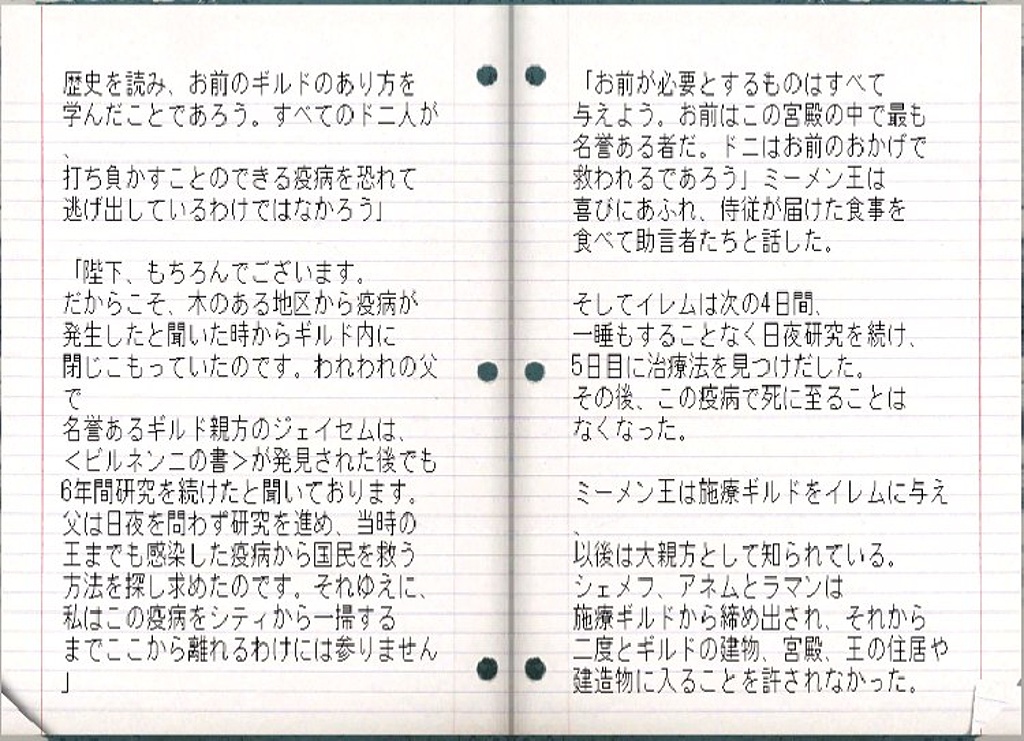 歴史を読み、お前のギルドのあり方を
学んだことであろう。すべてのドニ人が
、
打ち負かすことのできる疫病を恐れて
逃げ出しているわけではなかろう」
「陛下、もちろんでございます。
だからこそ、木のある地区から疫病が
発生したと聞いた時からギルド内に
閉じこもっていたのです。われわれの父
で
名誉あるギルド親方のジェイセムは、
＜ビルネンニの書＞が発見された後でも
6年間研究を続けたと聞いております。
父は日夜を問わず研究を進め、当時の
王までも感染した疫病から国民を救う
方法を探し求めたのです。それゆえに、
私はこの疫病をシティから一掃する
までここから離れるわけには参りません
」
「お前が必要とするものはすべて
与えよう。お前はこの宮殿の中で最も
名誉ある者だ。ドニはお前のおかげで
救われるであろう」ミーメン王は
喜びにあふれ、侍従が届けた食事を
食べて助言者たちと話した。
そしてイレムは次の4日間、
一睡もすることなく日夜研究を続け、
5日目に治療法を見つけだした。
その後、この疫病で死に至ることは
なくなった。
ミーメン王は施療ギルドをイレムに与え
、
以後は大親方として知られている。
シェメフ、アネムとラマンは
施療ギルドから締め出され、それから
二度とギルドの建物、宮殿、王の住居や
建造物に入ることを許されなかった。